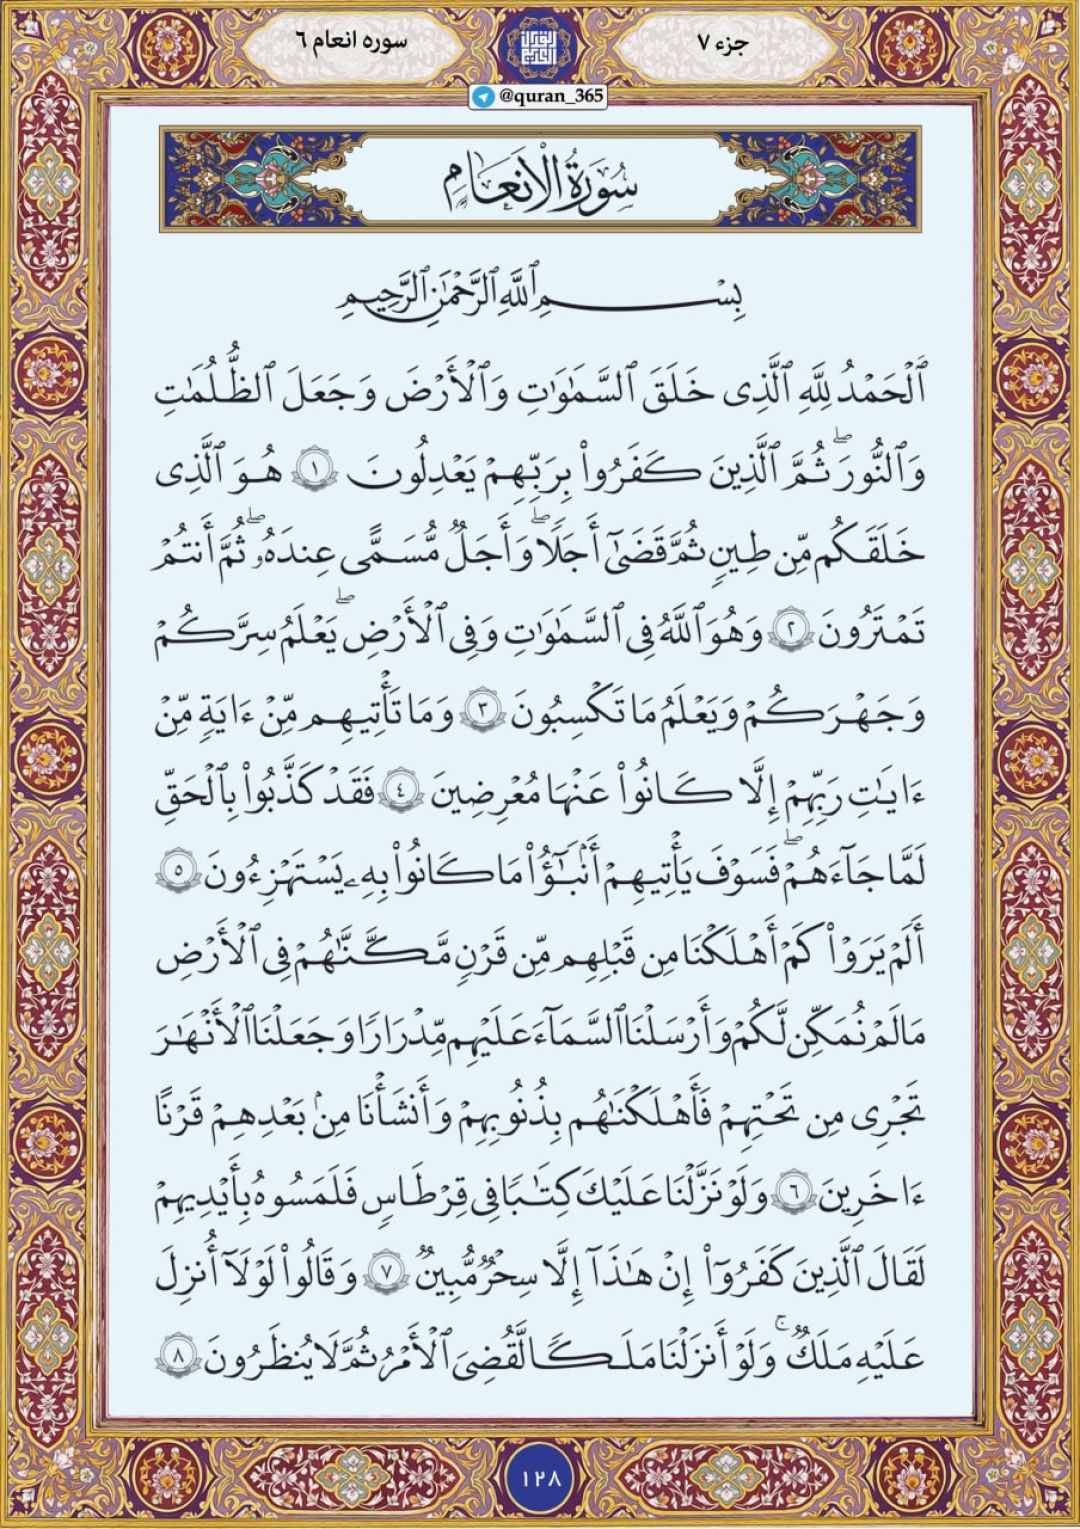 جزء ٧
سوره انعام ٦
@quran_365
سُورَةُ الْأَنْعَامِ
بِسْمِ ٱللَّهِ ٱلرَّحْمَٰنِ ٱلرَّحِيمِ
ٱلْحَمْدُ لِلَّهِ ٱلَّذِى خَلَقَ ٱلسَّمَٰوَٰتِ وَٱلْأَرْضَ وَجَعَلَ ٱلظُّلُمَٰتِ
وَٱلنُّورَ ۖ ثُمَّ ٱلَّذِينَ كَفَرُوا۟ بِرَبِّهِمْ يَعْدِلُونَ ١ هُوَ ٱلَّذِى
خَلَقَكُم مِّن طِينٍ ثُمَّ قَضَىٰٓ أَجَلًا ۖ وَأَجَلٌ مُّسَمًّى عِندَهُۥ ۖ ثُمَّ أَنتُمْ
تَمْتَرُونَ ٢ وَهُوَ ٱللَّهُ فِى ٱلسَّمَٰوَٰتِ وَفِى ٱلْأَرْضِ ۖ يَعْلَمُ سِرَّكُمْ
وَجَهْرَكُمْ وَيَعْلَمُ مَا تَكْسِبُونَ ٣ وَمَا تَأْتِيهِم مِّنْ ءَايَةٍ مِّنْ
ءَايَٰتِ رَبِّهِمْ إِلَّا كَانُوا۟ عَنْهَا مُعْرِضِينَ ٤ فَقَدْ كَذَّبُوا۟ بِٱلْحَقِّ
لَمَّا جَآءَهُمْ ۖ فَسَوْفَ يَأْتِيهِمْ أَنۢبَٰٓؤُا۟ مَا كَانُوا۟ بِهِۦ يَسْتَهْزِءُونَ ٥
أَلَمْ يَرَوْا۟ كَمْ أَهْلَكْنَا مِن قَبْلِهِم مِّن قَرْنٍ مَّكَّنَّٰهُمْ فِى ٱلْأَرْضِ
مَا لَمْ نُمَكِّن لَّكُمْ وَأَرْسَلْنَا ٱلسَّمَآءَ عَلَيْهِم مِّدْرَارًا وَجَعَلْنَا ٱلْأَنْهَٰرَ
تَجْرِى مِن تَحْتِهِمْ فَأَهْلَكْنَٰهُم بِذُنُوبِهِمْ وَأَنشَأْنَا مِنۢ بَعْدِهِمْ قَرْنًا
ءَاخَرِينَ ٦ وَلَوْ نَزَّلْنَا عَلَيْكَ كِتَٰبًا فِى قِرْطَاسٍ فَلَمَسُوهُ بِأَيْدِيهِمْ
لَقَالَ ٱلَّذِينَ كَفَرُوٓا۟ إِنْ هَٰذَآ إِلَّا سِحْرٌ مُّبِينٌ ٧ وَقَالُوا۟ لَوْلَآ أُنزِلَ
عَلَيْهِ مَلَكٌ ۖ وَلَوْ أَنزَلْنَا مَلَكًا لَّقُضِىَ ٱلْأَمْرُ ثُمَّ لَا يُنظَرُونَ ٨
١٢٨